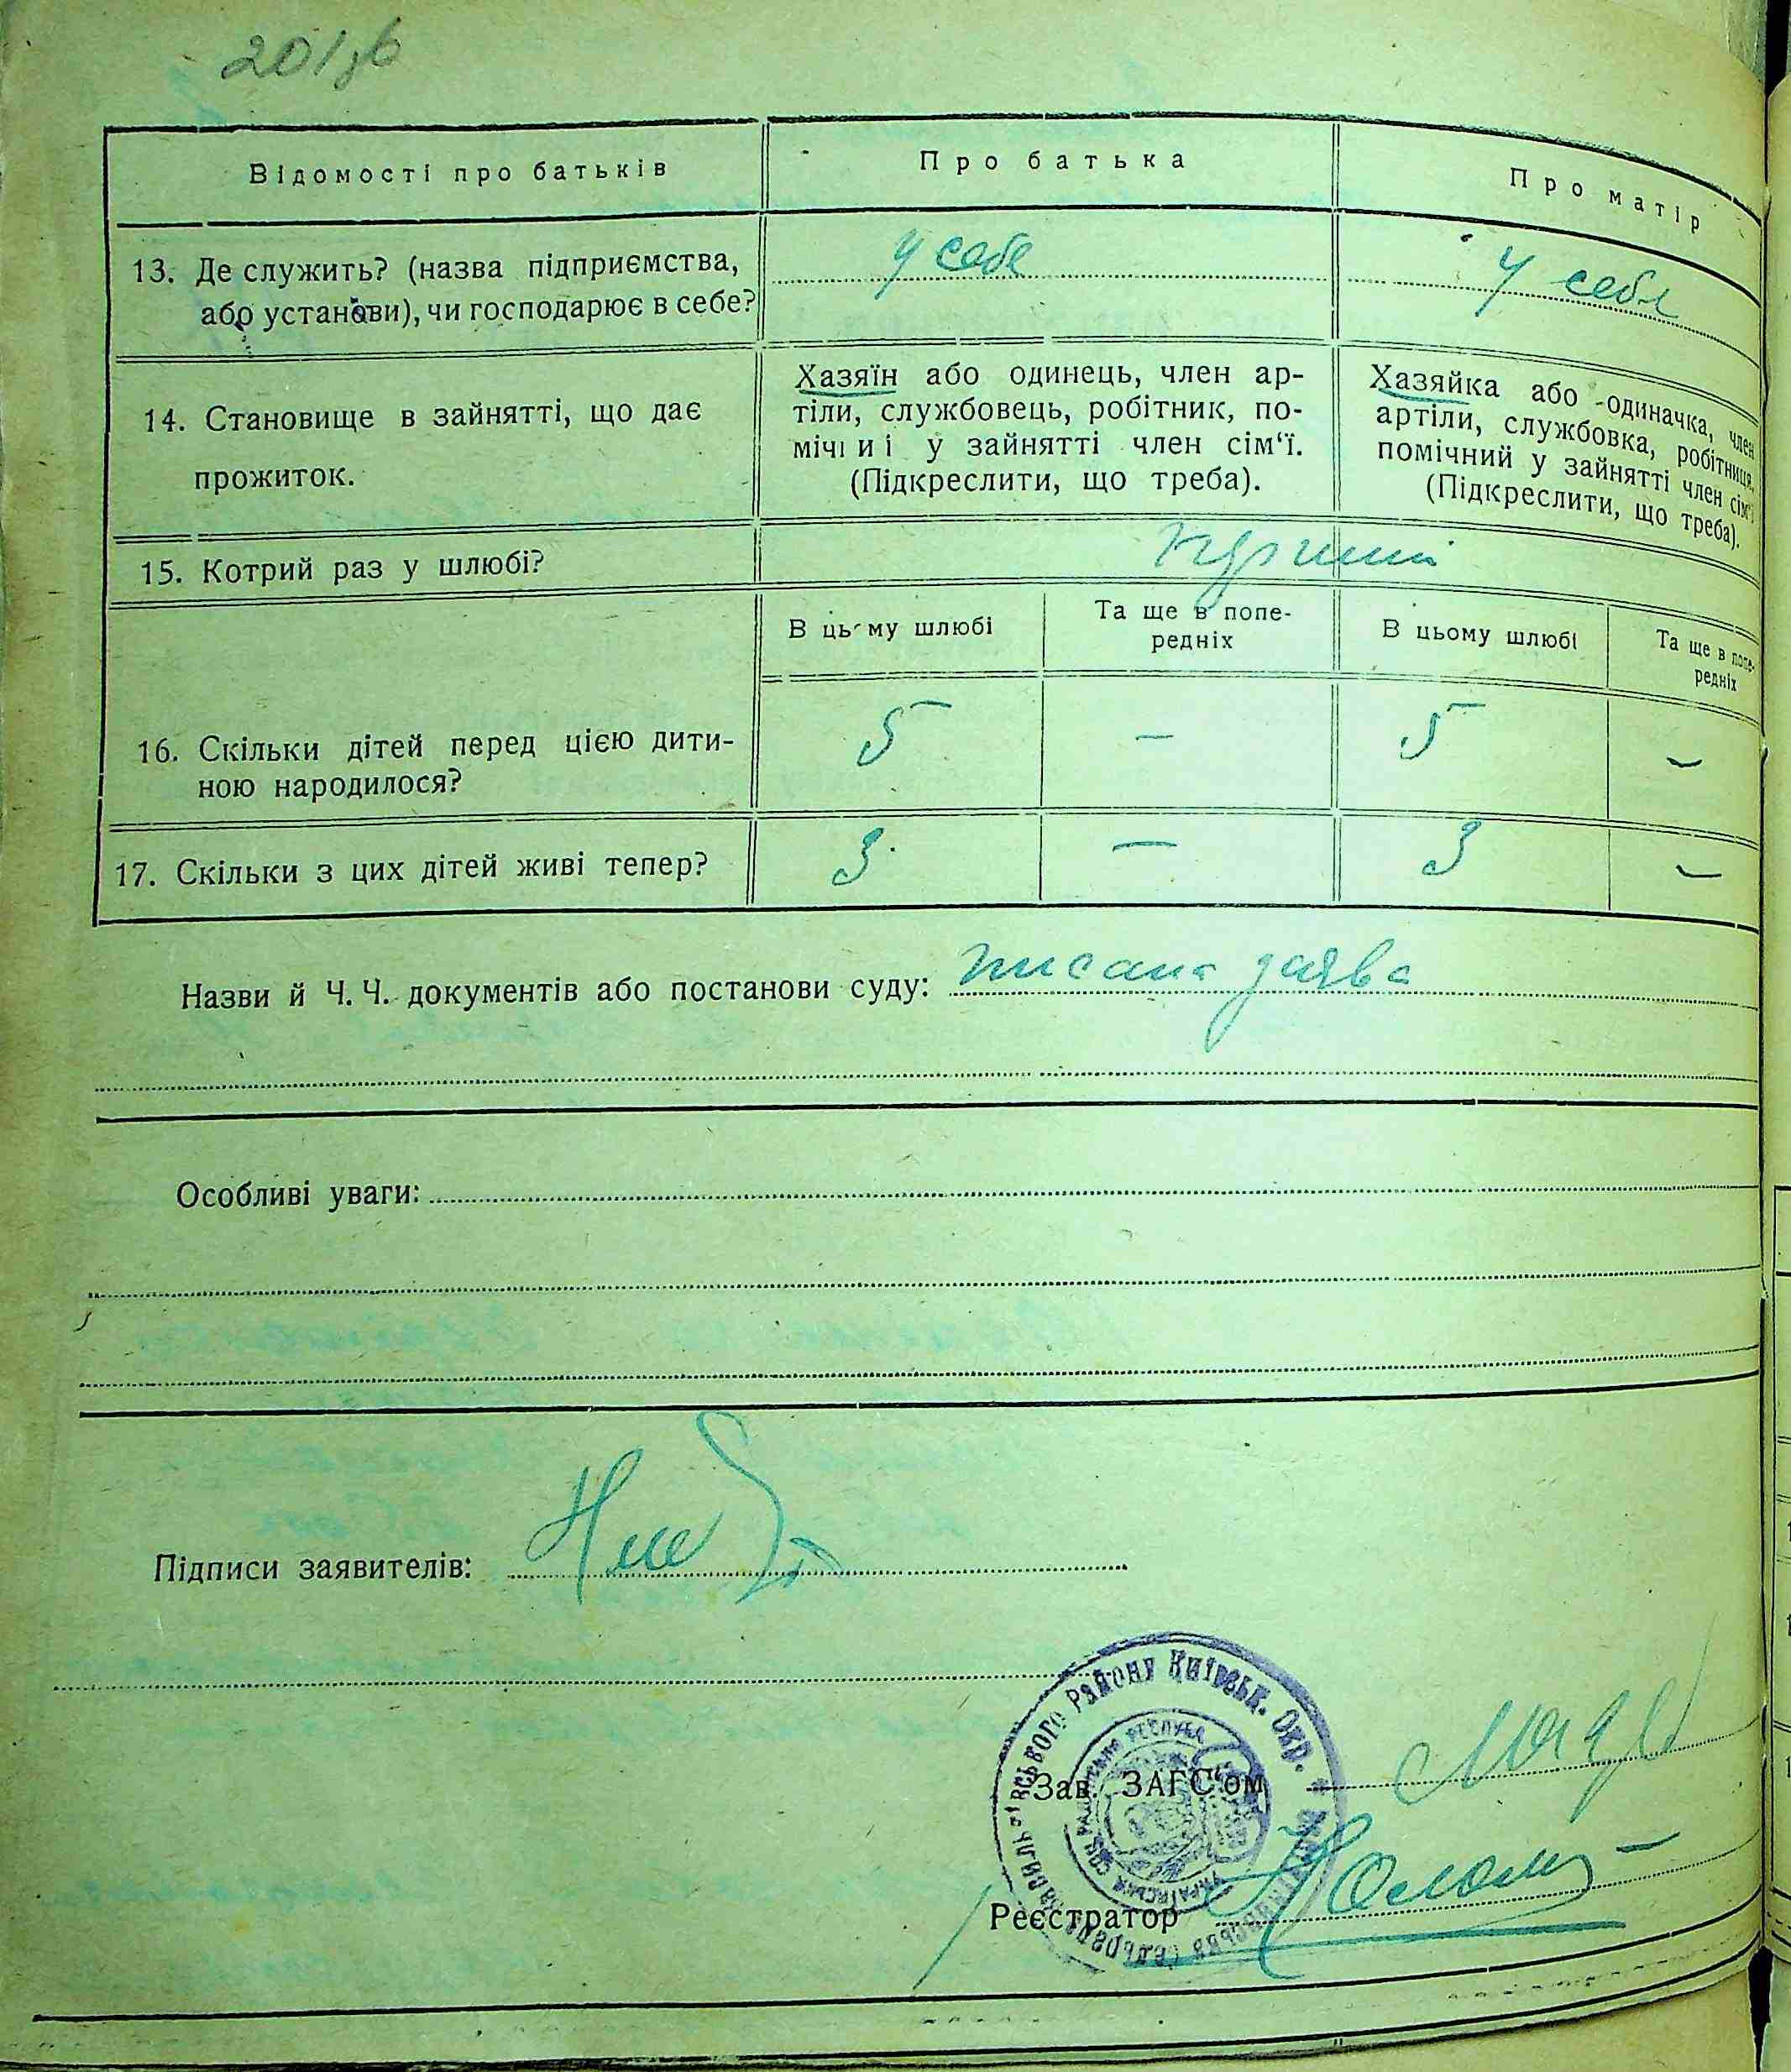 201зв
Відомості про батьків
Про батька
Про матір
13. Де служить? (назва підприємства,
або установи), чи господарює в себе?
у себе
у себе
14. Становище в зайнятті, що дає
прожиток.
Хазяїн або одинець, член ар-
тіли, службовець, робітник, по-
мічний у зайнятті член сім‘ї.
(Підкреслити, що треба).
Хазяйка або одиначка, член
артіли, службовка, робітниця,
помічний у зайнятті член сім‘ї
(Підкреслити, що треба).
15. Котрий раз у шлюбі?
перший
В цьому шлюбі
Та ще в попе-
редніх
В цьому шлюбі
Та ще в попе-
редніх
16. Скільки дітей перед цією дити-
ною народилося?
5 — 5 —
17. Скільки з цих дітей живі тепер?
3 — 3 —
Назви й Ч. Ч. документів або постанови суду: писана заява
Особливі уваги:
Підписи заявителів:
Району Київськ. Окр.
Зав. ЗАГС‘ом
Реєстратор